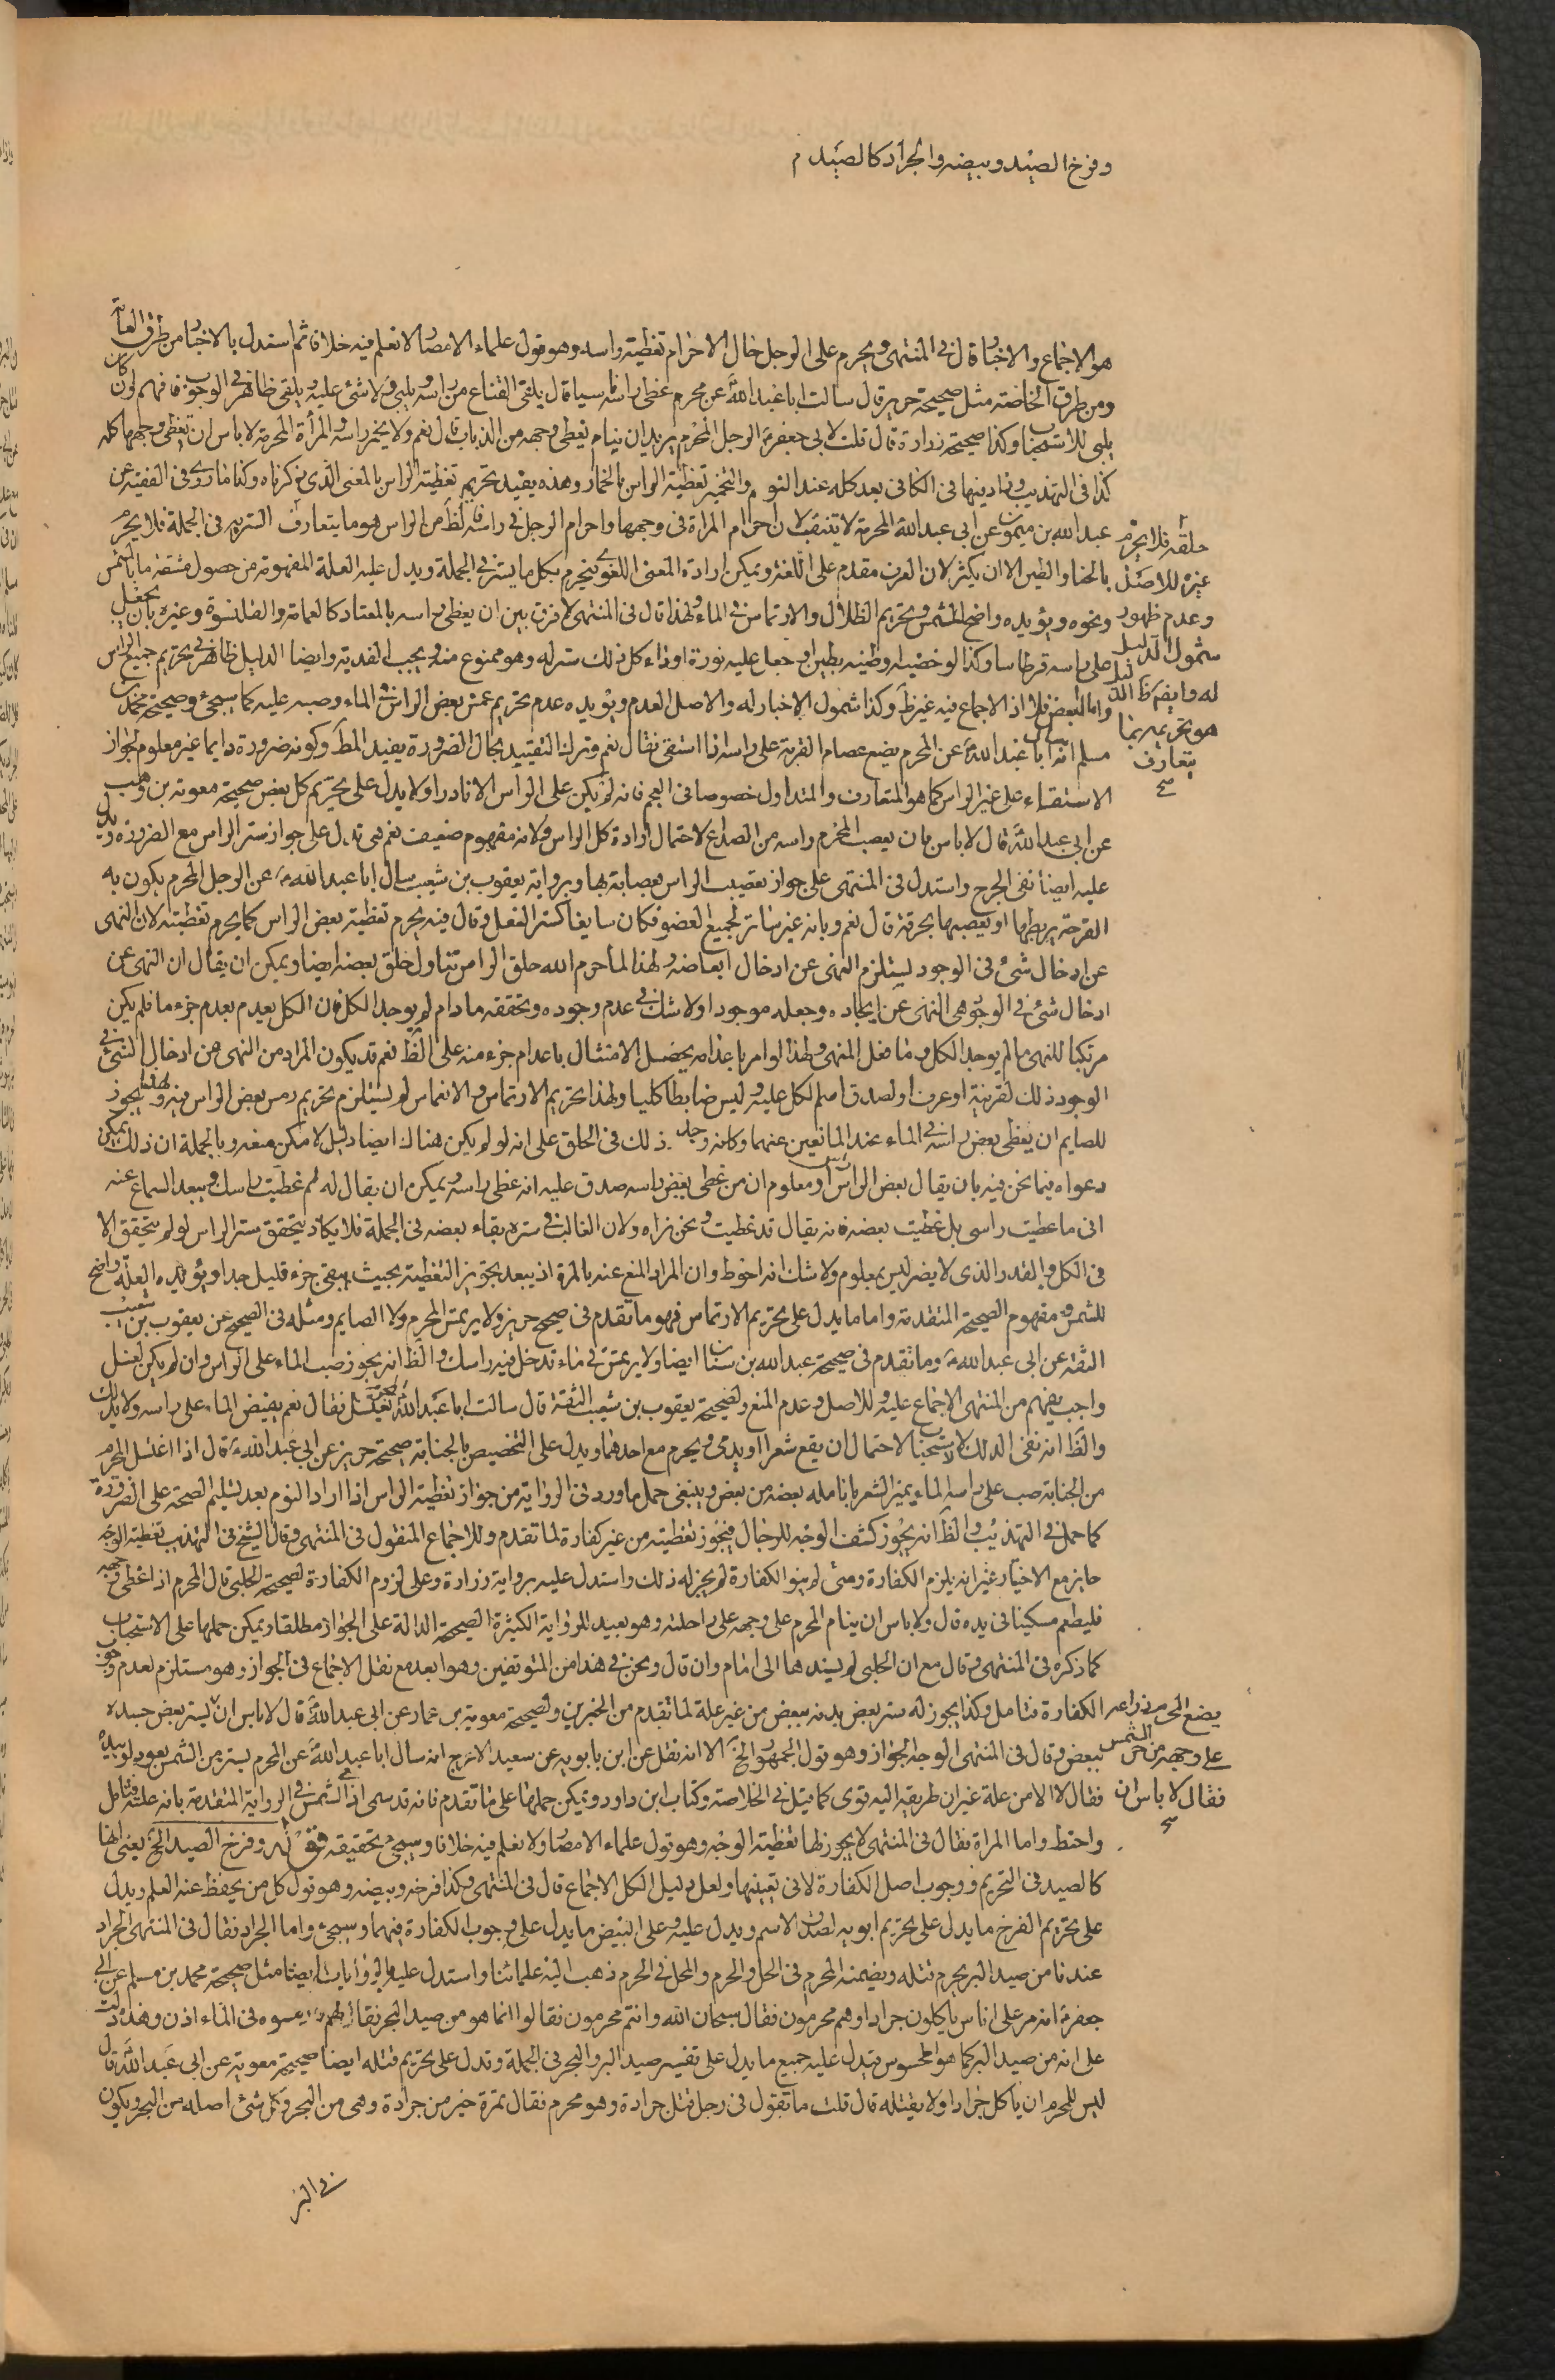 وفرخ الصيد وبيضه والجراد كالصيد م
هو الاجماع والاخبار قال في المنتهى ويحرم على الرجل حال الاحرام تغطية راسه وهو قول علماء الامصار لا نعلم فيه خلافا ثم استدل بالاخبار من طرق العامة
ومن طرق الخاصة مثل صحيحة حريز قال سالت ابا عبد الله عن محرم غطى راسه ناسيا قال يلقى القناع من راسه ويلبي ولا شئ عليه يلقى ظاهر في الوجوب فافهم لو كان
يلبي للاستحباب وكذا صحيحة زرارة قال قلت لابي جعفر الرجل المحرم يريد ان ينام يغطى وجهه من الذباب قال نعم ولا يخمر راسه والمرأة المحرمة لا باس ان تغطى وجهها كله
كذا في التهذيب وزاد فيها في الكافي بعد كله عند النوم والتخمير تغطية الراس بالخمار وهذه يفيد تحريم تغطية الراس بالمعنى الذي ذكرناه وكذا ما روى في الفقيه عن
عبد الله بن ميمون عن ابي عبد الله المحرمة لا تتنقب لان احرام المراة في وجهها واحرام الرجل في راسه لظ من الراس هو ما يتعارف الستر به في الجملة فلا يحرم
حلقه فلا يحرم
بالحنا والطين الا ان يكثر لان العرف مقدم على اللغة ويمكن ارادة المعنى اللغوى فيحرم بكل ما يستر في الجملة ويدل عليه العلة المفهومة من حصول مشقة ما بالشمس
غيره للاصل
ونحوه ويؤيده واضح للشمس وتحريم الظلال والارتماس في الماء ولهذا قال في المنتهى لا فرق بين ان يغطى راسه بالمعتاد كالعمامة والقلنسوة وغيره بان يجعل
وعدم ظهور
على راسه قرطاسا وكذا لو خضب راسه او طينه بطين او جعل عليه نورة او دواء كل ذلك ستر له وهو ممنوع منه ويجب الفدية وايضا الدليل ظاهر في تحريم جميع الراس
شمول الدليل
واما البعض فلا اذ الاجماع فيه غير ظ وكذا شمول الاخبار له والاصل العدم ويؤيده عدم تحريم غمس بعض الراس في الماء وصبه عليه كما سيجئ وصحيحة محمد بن
له وايضا ظ
مسلم انه سال ابا عبد الله عن المحرم يضع عصام القربة على راسه اذا استقى فقال نعم وترك التقييد بحال الضرورة يفيد المط وكونه ضرورة دايما غير معلوم لجواز
هو تحريم بما
يتعارف
صح
الاستقاء على غير الراس كما هو المتعارف والمتداول خصوصا في العجم فانه لم يكن على الراس الا نادرا ولا يدل على تحريم كل بعض صحيحة معوية بن وهب
عن ابي عبد الله قال لا باس بان يعصب المحرم راسه من الصداع لاحتمال ارادة كل الراس ولانه مفهوم ضعيف نعم هى تدل على جواز ستر الراس مع الضرورة ويدل
عليه ايضا نفى الحرج واستدل في المنتهى على جواز تعصيب الراس بعصابة بها وبرواية يعقوب بن شعيب سال ابا عبد الله عن الرجل المحرم يكون به
القرحة يربطها او يعصبها بخرقة قال نعم وبانه غير ساتر لجميع العضو فكان سايغا كستر الفعل وقال فيه يحرم تغطية بعض الراس كما يحرم تغطيته لان النهى
عن ادخال شئ في الوجود يستلزم النهى عن ادخال ابعاضه ولهذا لما حرم الله حلق الراس تناول حلق بعضه ايضا ويمكن ان يقال ان النهى عن
ادخال شئ في الوجود هى النهى عن ايجاده وجعله موجودا ولا شك في عدم وجوده وتحققه ما دام لم يوجد الكل فان الكل يعدم بعدم جزء ما فلم يكن
مرتكبا للنهى ما لم يوجد الكل وما فعل المنهى ولهذا لو امر باعدامه يحصل الامتثال باعدام جزء منه على الظ نعم قد يكون المراد من النهى من ادخال الشئ في
الوجود ذلك لقرينة او عرف او لصدق اسم الكل عليه وليس ضابطا كليا ولهذا تحريم الارتماس والانغماس لم يستلزم تحريم رمس بعض الراس فيه ولهذا يجوز
للصايم ان يغطى بعض راسه في الماء عند المانعين عنهما وكانه وجد ذلك في الحلق على انه لو لم يكن هناك ايضا دليل لامكن منعه وبالجملة ان ذلك يمكن
دعواه فيما نحن فيه بان يقال بعض الراس راس ومعلوم ان من غطى بعض راسه صدق عليه انه غطى راسه ويمكن ان يقال له لم غطيت راسك ويبعد السماع عنه
انى ما غطيت راسى بل غطيت بعضه فانه يقال قد غطيت ونحن نراه ولان الغالب في ستره بقاء بعضه في الجملة فلا يكاد يتحقق ستر الراس لو لم يتحقق الا
في الكل والقدر الذى لا يضر ليس بمعلوم ولا شك انه احوط وان المراد المنع عنه بالمرة اذ يبعد تجويز التغطية بحيث يبقى جزء قليل جدا ويؤيده العلة واضح
للشمس ومفهوم الصحيحة المتقدمة واما ما يدل على تحريم الارتماس فهو ما تقدم في صحيح حريز ولا يرتمس المحرم ولا الصايم ومثله في الصحيح عن يعقوب بن شعيب
الثقة عن ابي عبد الله وما تقدم في صحيحة عبد الله بن سنان ايضا ولا يرتمس في ماء تدخل فيه راسك والظ انه يجوز صب الماء على الراس وان لم يكن لغسل
واجب يفهم من المنتهى الاجماع عليه وللاصل وعدم المنع ولصحيحة يعقوب بن شعيب الثقة قال سالت ابا عبد الله عن المحرم يغتسل فقال نعم يفيض الماء على راسه ولا يدلك
والظ انه نفى الدلك للاستحباب لاحتمال ان يقع شعرا او يدمى ويحرم مع احدهما ويدل على التخصيص بالجنابة صحيحة حريز عن ابي عبد الله قال اذا اغتسل المحرم
من الجنابة صب على راسه الماء يميز الشعر بانامله بعضه من بعض وينبغى حمل ما ورد في الرواية من جواز تغطية الراس اذا اراد النوم بعد تسليم الصحة على الضرورة
كما حمل في التهذيب والظ انه يجوز كشف الوجه للرجال فيجوز تغطيته من غير كفارة لما تقدم وللاجماع المنقول في المنتهى وقال الشيخ في التهذيب تغطية الوجه
جايز مع الاختيار غير انه يلزم الكفارة ومتى لم ينو الكفارة لم يجز له ذلك واستدل عليه برواية زرارة وعلى لزوم الكفارة لصحيحة الحلبي قال المحرم اذا غطى وجهه
فليطعم مسكينا في يده قال ولا باس ان ينام المحرم على وجهه على راحلته وهو بعيد للرواية الكثيرة الصحيحة الدالة على الجواز مطلقا ويمكن حملها على الاستحباب
كما ذكره في المنتهى وقال مع ان الحلبي لم يسندها الى امام وان قال ونحن في هذا من المتوقفين وهو ابعد مع نقل الاجماع في الجواز وهو مستلزم لعدم وجوب
الكفارة فتامل وكذا يجوز له ستر بعض بدنه ببعض من غير علة لما تقدم من الخبرين ولصحيحة معوية بن عمار عن ابي عبد الله قال لا باس ان يستر بعض جسده
يضع المحرم ذراعه
ببعض وقال في المنتهى الوجه الجواز وهو قول الجمهور الخ الا انه نقل عن ابن بابويه عن سعيد الاعرج انه سال ابا عبد الله عن المحرم يستر من الشمس بعود او بيده
على وجهه من حر الشمس
فقال لا الا من علة غير ان طريقه اليه قوى كما قيل في الخلاصة وكتاب ابن داود ويمكن حملها على ما تقدم فانه قد سمى اذى الشمس في الرواية المتقدمة بانه علة فتامل
فقال لا باس ان
صح
واحتط واما المراة فقال في المنتهى لا يجوز لها تغطية الوجه وهو قول علماء الامصار ولا نعلم فيه خلافا وسيجئ تحقيقه قوله وفرخ الصيد الخ يعنى انها
كالصيد في التحريم ووجوب اصل الكفارة لا في تعيينها ولعل دليل الكل الاجماع قال في المنتهى وكذا فرخه وبيضه وهو قول كل من يحفظ عنه العلم ويدل
على تحريم الفرخ ما يدل على تحريم ابويه لصدق الاسم ويدل عليه وعلى البيض ما يدل على وجوب الكفارة فيهما وسيجئ واما الجراد فقال في المنتهى الجراد
عندنا من صيد البر يحرم قتله ويضمنه المحرم في الحل والحرم والمحل في الحرم ذهب اليه علمائنا واستدل عليه بالروايات ايضا مثل صحيحة محمد بن مسلم عن ابي
جعفر انه مر على اناس ياكلون جرادا وهم محرمون فقال سبحان الله وانتم محرمون فقالوا انما هو من صيد البحر فقال لهم ارمسوه في الماء اذن وهذه دلت
على انه من صيد البر كما هو المحسوس ويدل عليه جميع ما يدل على تفسير صيد البر والبحر في الجملة وتدل على تحريم قتله ايضا صحيحة معوية عن ابي عبد الله قال
ليس للمحرم ان ياكل جرادا ولا يقتله قال قلت ما تقول في رجل قتل جرادة وهو محرم فقال تمرة خير من جرادة وهى من البحر وكل شئ اصله من البحر ويكون
في البر